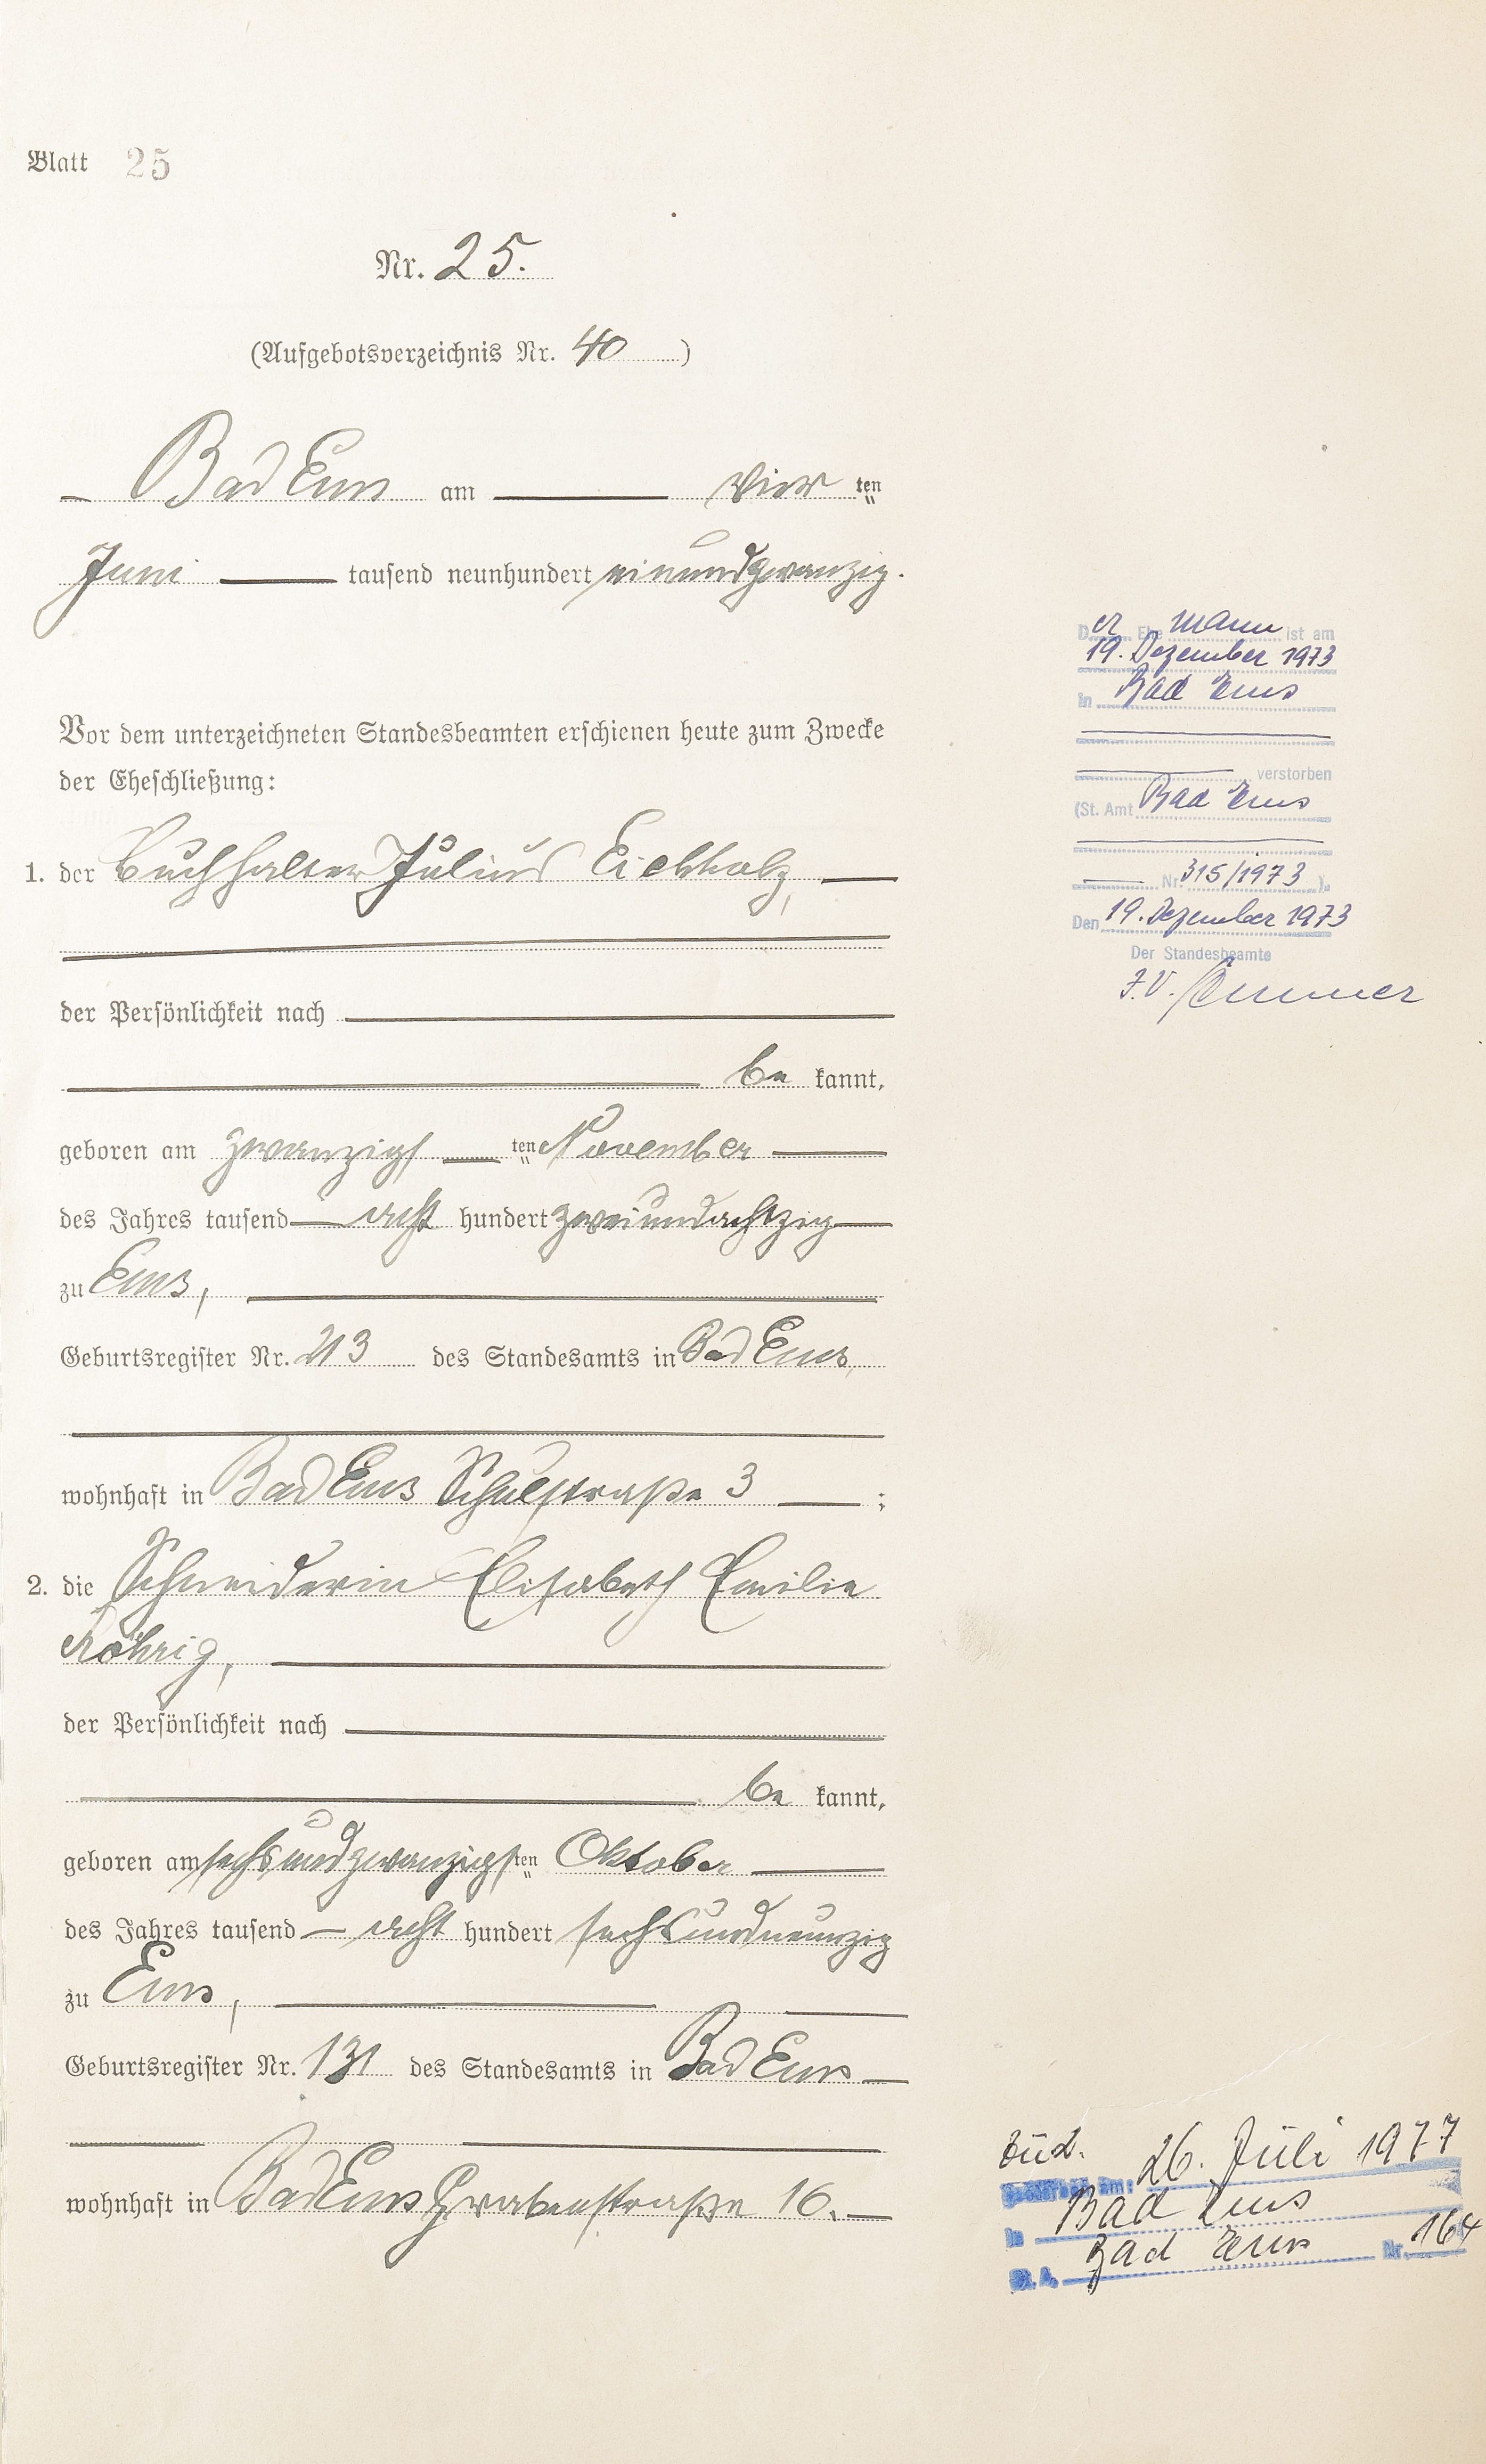 Blatt 25
Nr. 25.
(Aufgebotsverzeichnis Nr. 40 )
Bad Ems am vier ten
Juni tausend neunhundert einundzwanzig.
Vor dem unterzeichneten Standesbeamten erschienen heute zum Zwecke
der Eheschließung:
1. der Buchhalter Julius Eichholz,
der Persönlichkeit nach
be kannt,
geboren am zwanzigs ten November
des Jahres tausend acht hundert zweiundachtzig
zu Ems,
Geburtsregister Nr. 213 des Standesamts in Bad Ems,
wohnhaft in Bad Ems Schulstraße 3 ;
2. die Schneiderin Elisabeth Emilie
Röhrig,
der Persönlichkeit nach
be kannt,
geboren am sechsundzwanzigs ten Oktober
des Jahres tausend acht hundert sechsundneunzig
zu Ems,
Geburtsregister Nr. 131 des Standesamts in Bad Ems
wohnhaft in Bad Ems Grabenstraße 16.
D er Ehe mann ist am
19. Dezember 1973
in Bad Ems
verstorben
(St. Amt Bad Ems
Nr. 315/1973 ).
Den 19. Dezember 1973
Der Standesbeamte
I.V.
26. Juli 1977
in Bad Ems
St. A. Bad Ems Nr. 164